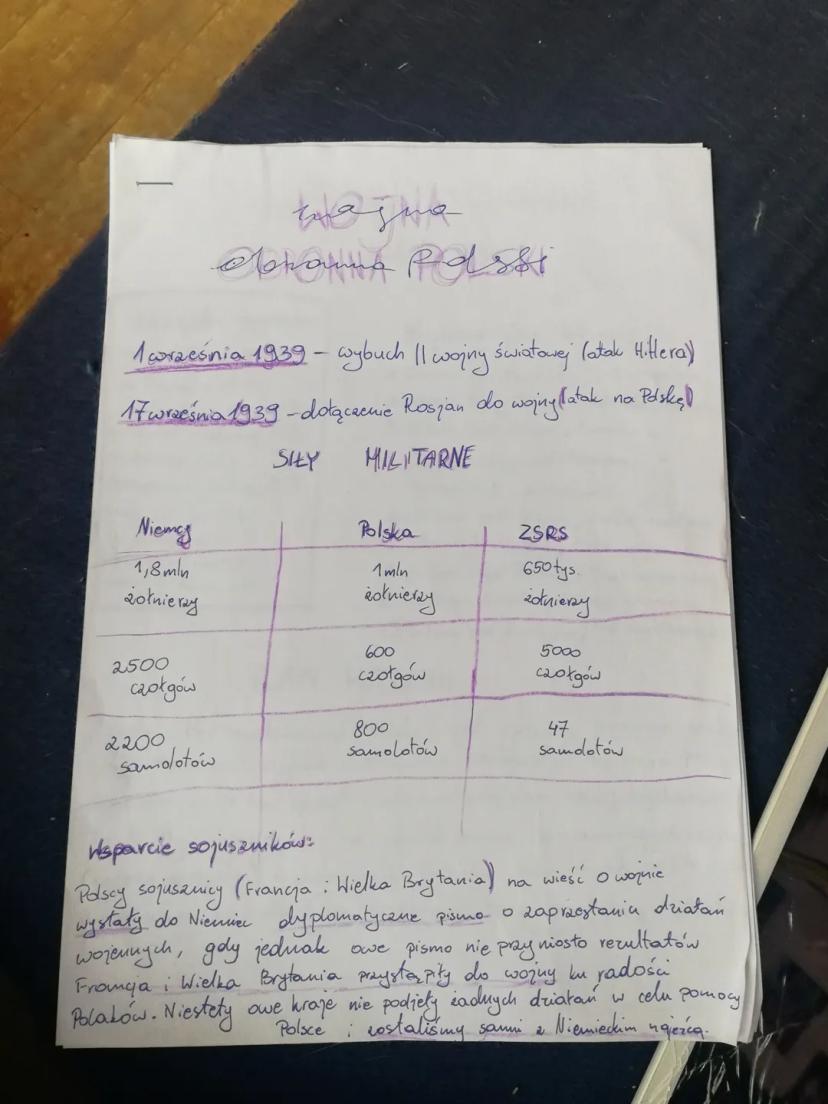 Wojna
obronna Polski
1 września 1939 – wybuch II wojny światowej (atak Hitlera)
17 września 1939 – dołączenie Rosjan do wojny (atak na Polskę)
SIŁY MILITARNE
Niemcy Polska ZSRS
1,8 mln 1 mln 650 tys.
żołnierzy żołnierzy żołnierzy
2500 600 5000
czołgów czołgów czołgów
2200 800 47
samolotów samolotów samolotów
Wsparcie sojuszników:
Polscy sojusznicy (Francja i Wielka Brytania) na wieść o wojnie
wystały do Niemiec dyplomatyczne pismo o zaprzestaniu działań
wojennych, gdy jednak owe pismo nie przyniosło rezultatów
Francja i Wielka Brytania przystąpiły do wojny ku radości
Polaków. Niestety owe kraje nie podjęły żadnych działań w celu pomocy
Polsce i zostaliśmy sami z Niemieckim najeźcą.